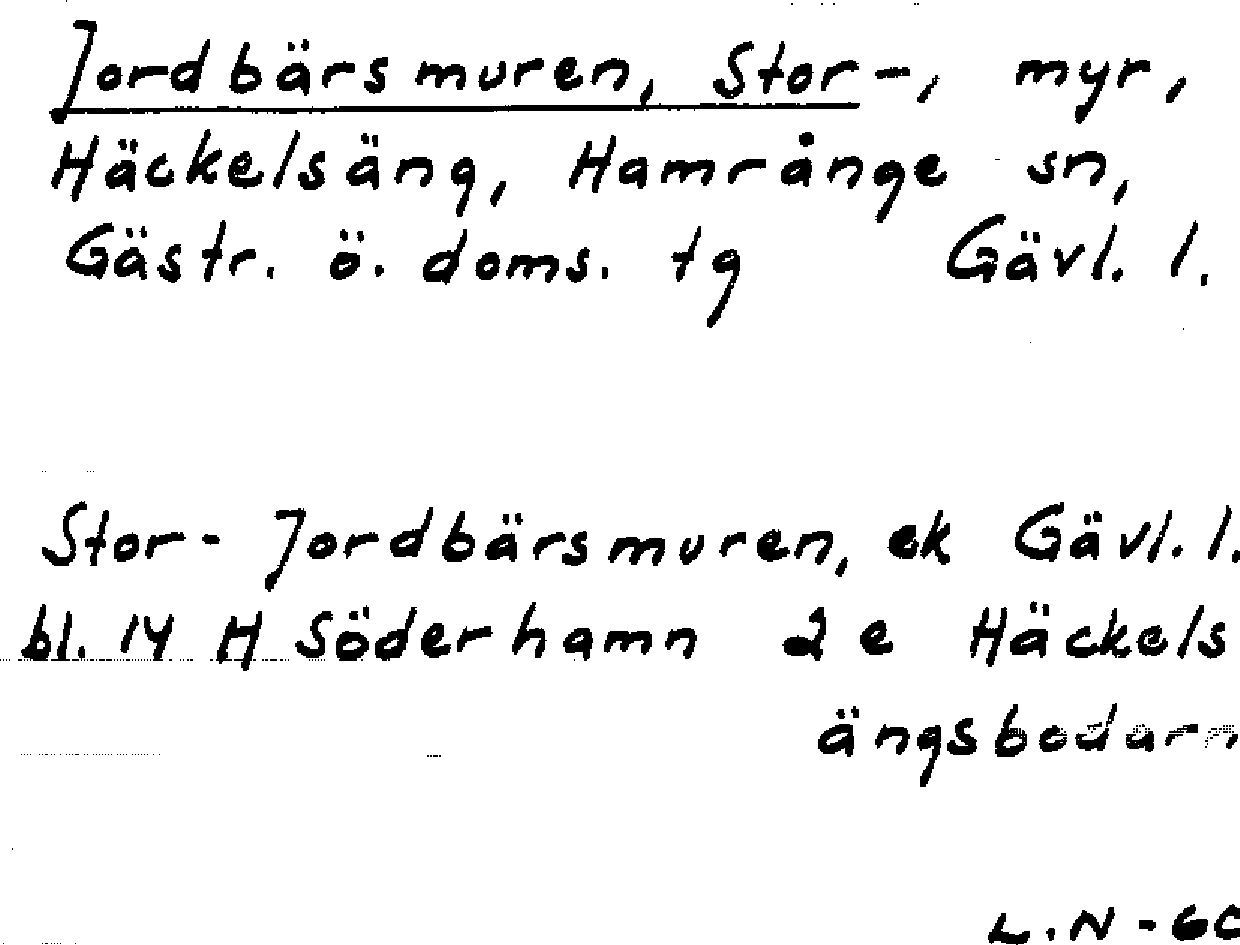 Jordbärsmuren, Stor-, myr,
Häckelsäng, Hamrånge sn,
Gästr. ö. doms. tg Gävl. l.
Stor- Jordbärsmuren, ek Gävl. l.
bl. 14 H Söderhamn 2 e Häckels
ängsbodarn
L.N - 60